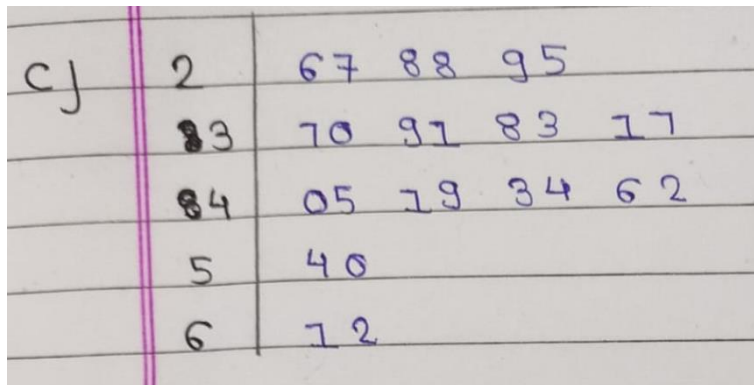 c) 2 67 88 95
83 70 91 83 17
84 05 19 34 62
5 40
6 12